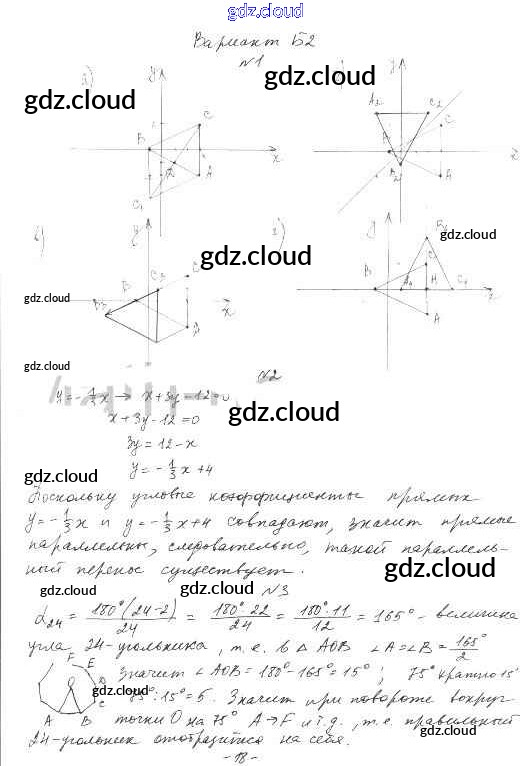 gdz.cloud
Вариант Б2
№1
а)
y
gdz.cloud
B
C
D
A
x
C₁
y
gdz.cloud
A₂
C₂
C
B
B₂
A
x
в)
y
gdz.cloud
gdz.cloud
B
C₃
C
B₃
A
x
г)
y
gdz.cloud
B
C
A₄
H
C₄
x
A
gdz.cloud
№2
y = -1/3 x → x + 3y - 12 = 0
gdz.cloud
x + 3y - 12 = 0
3y = 12 - x
y = -1/3 x + 4
gdz.cloud
Поскольку угловые коэффициенты прямых
y = -1/3 x и y = -1/3 x + 4 совпадают, значит прямые
параллельны, следовательно, такой параллель-
ный перенос существует.
gdz.cloud
gdz.cloud
№3
α₂₄ = 180°(24-2)/24 = 180°·22/24 = 180°·11/12 = 165° - величина
угла 24-угольника, т.е. в △ AOB ∠A = ∠B = 165°/2
Значит ∠AOB = 180° - 165° = 15°; 75° кратно 15°
F E D O A B
gdz.cloud
75° : 15° = 5. Значит при повороте вокруг
точки O на 75° A → F и т.д., т.е. правильный
24-угольник отобразится на себя.
gdz.cloud
gdz.cloud
- 18 -